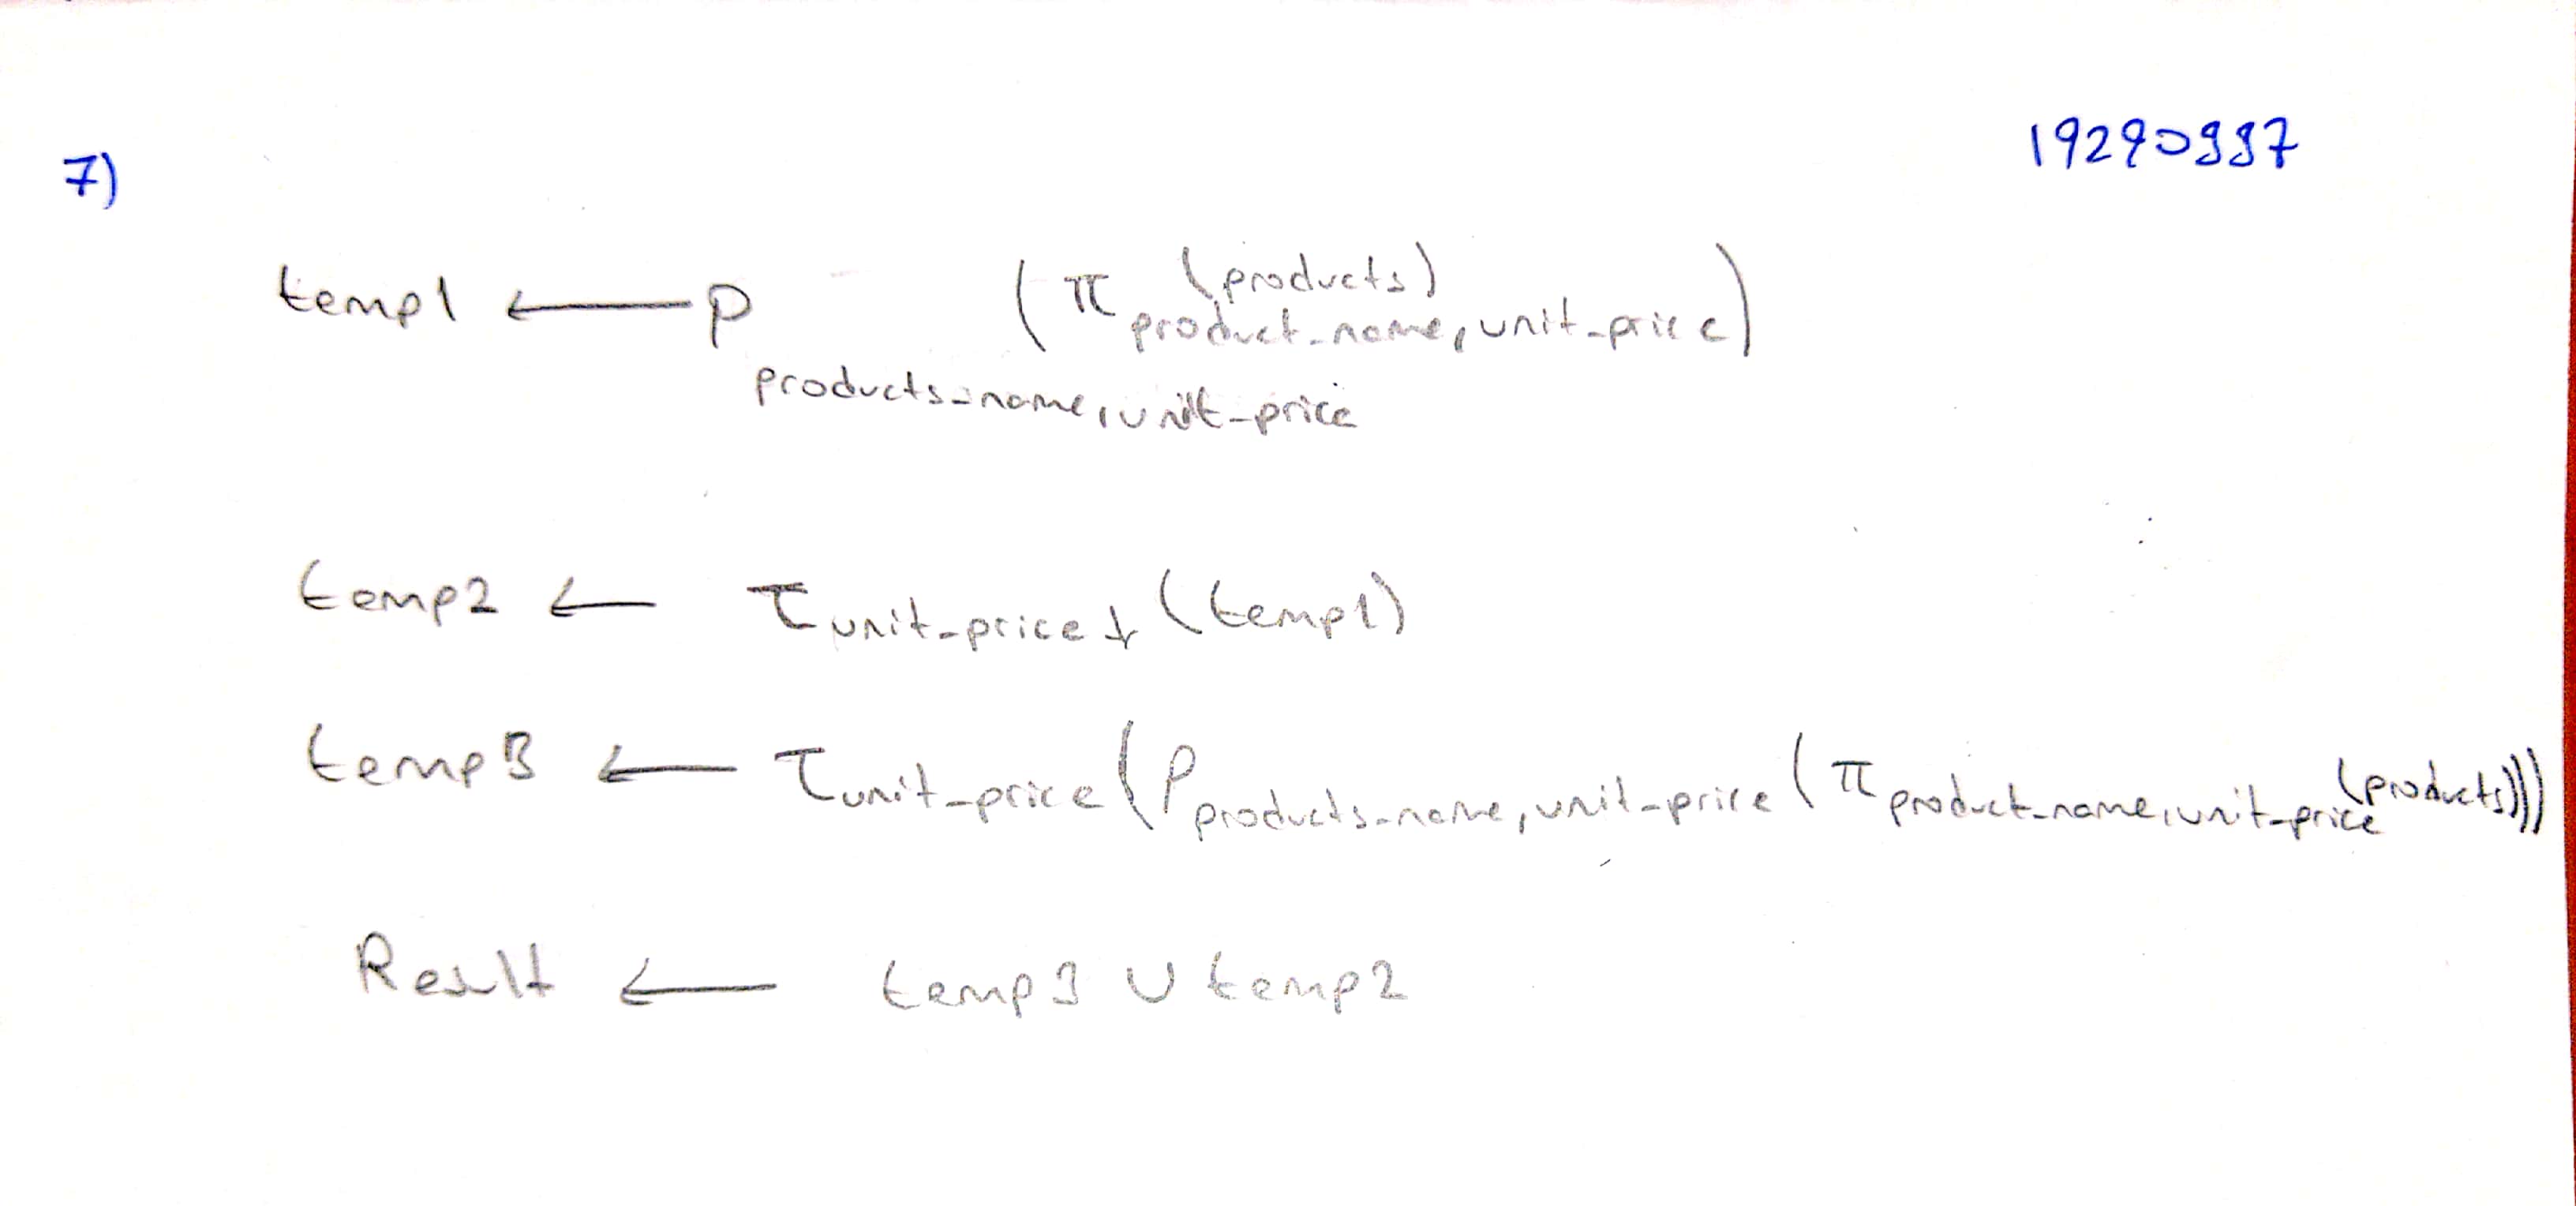 7)
19290997
temp1 ← ρ products_name, unit_price (π product_name, unit_price (products))
temp2 ← τ unit_price ↓ (temp1)
temp3 ← τ unit_price (ρ products_name, unit_price (π product_name, unit_price (products)))
Result ← temp3 ∪ temp2